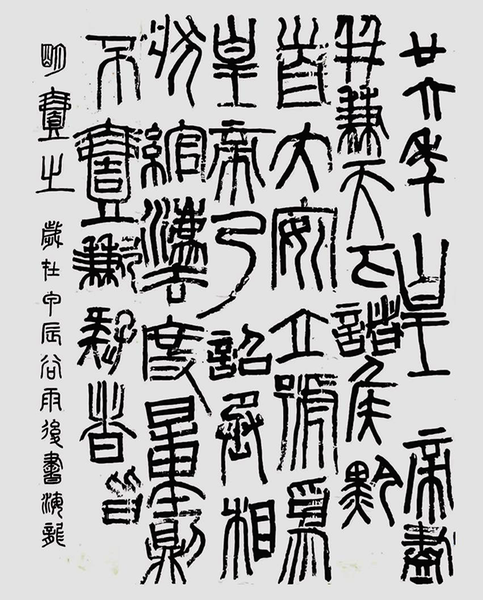 廿六年皇帝盡
并兼天下諸侯黔
首大安立號為
皇帝乃詔丞相
狀綰灋度量則
不壹歉疑者皆
明壹之 歲在甲辰谷雨後書演龍